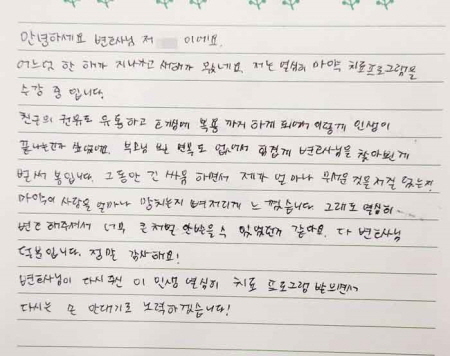 안녕하세요 변호사님 저 이에요.
어느덧 한 해가 지나가고 새해가 왔네요. 저는 열심히 마약 치료프로그램을
수강 중 입니다.
친구의 권유로 유통하고 호기심에 복용 까지 하게 되면서 이렇게 인생이
끝나는건가 싶었는데. 부모님 볼 면목도 없어서 힘겹게 변호사님을 찾아뵌게
벌써 봄입니다. 그동안 긴 싸움 하면서 제가 얼마나 무서운 것을 저질렀는지
마약이 사람을 얼마나 망치는지 뼈저리게 느꼈습니다. 그래도 열심히
변호 해주셔서 너무 큰 처벌 안받을수 있었던거 같아요. 다 변호사님
덕분입니다. 정말 감사해요!
변호사님이 다시 주신 이 인생 열심히 치료 프로그램 받으면서
다시는 손 안대기로 노력하겠습니다!